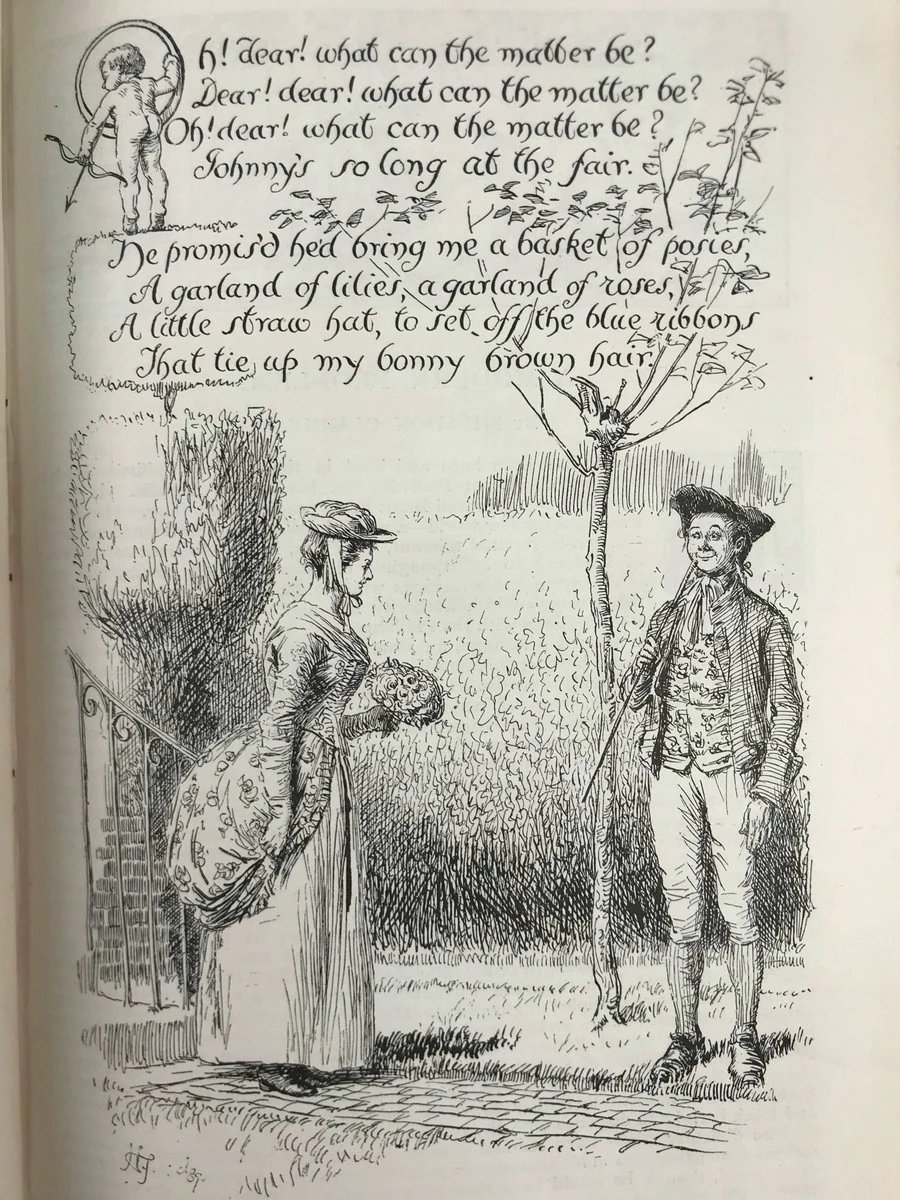 Oh! dear! what can the matter be?
Dear! dear! what can the matter be?
Oh! dear! what can the matter be?
Johnny's so long at the fair.
He promis'd he'd bring me a basket of posies,
A garland of lilies, a garland of roses,
A little straw hat, to set off the blue ribbons
That tie up my bonny brown hair.
HJ.